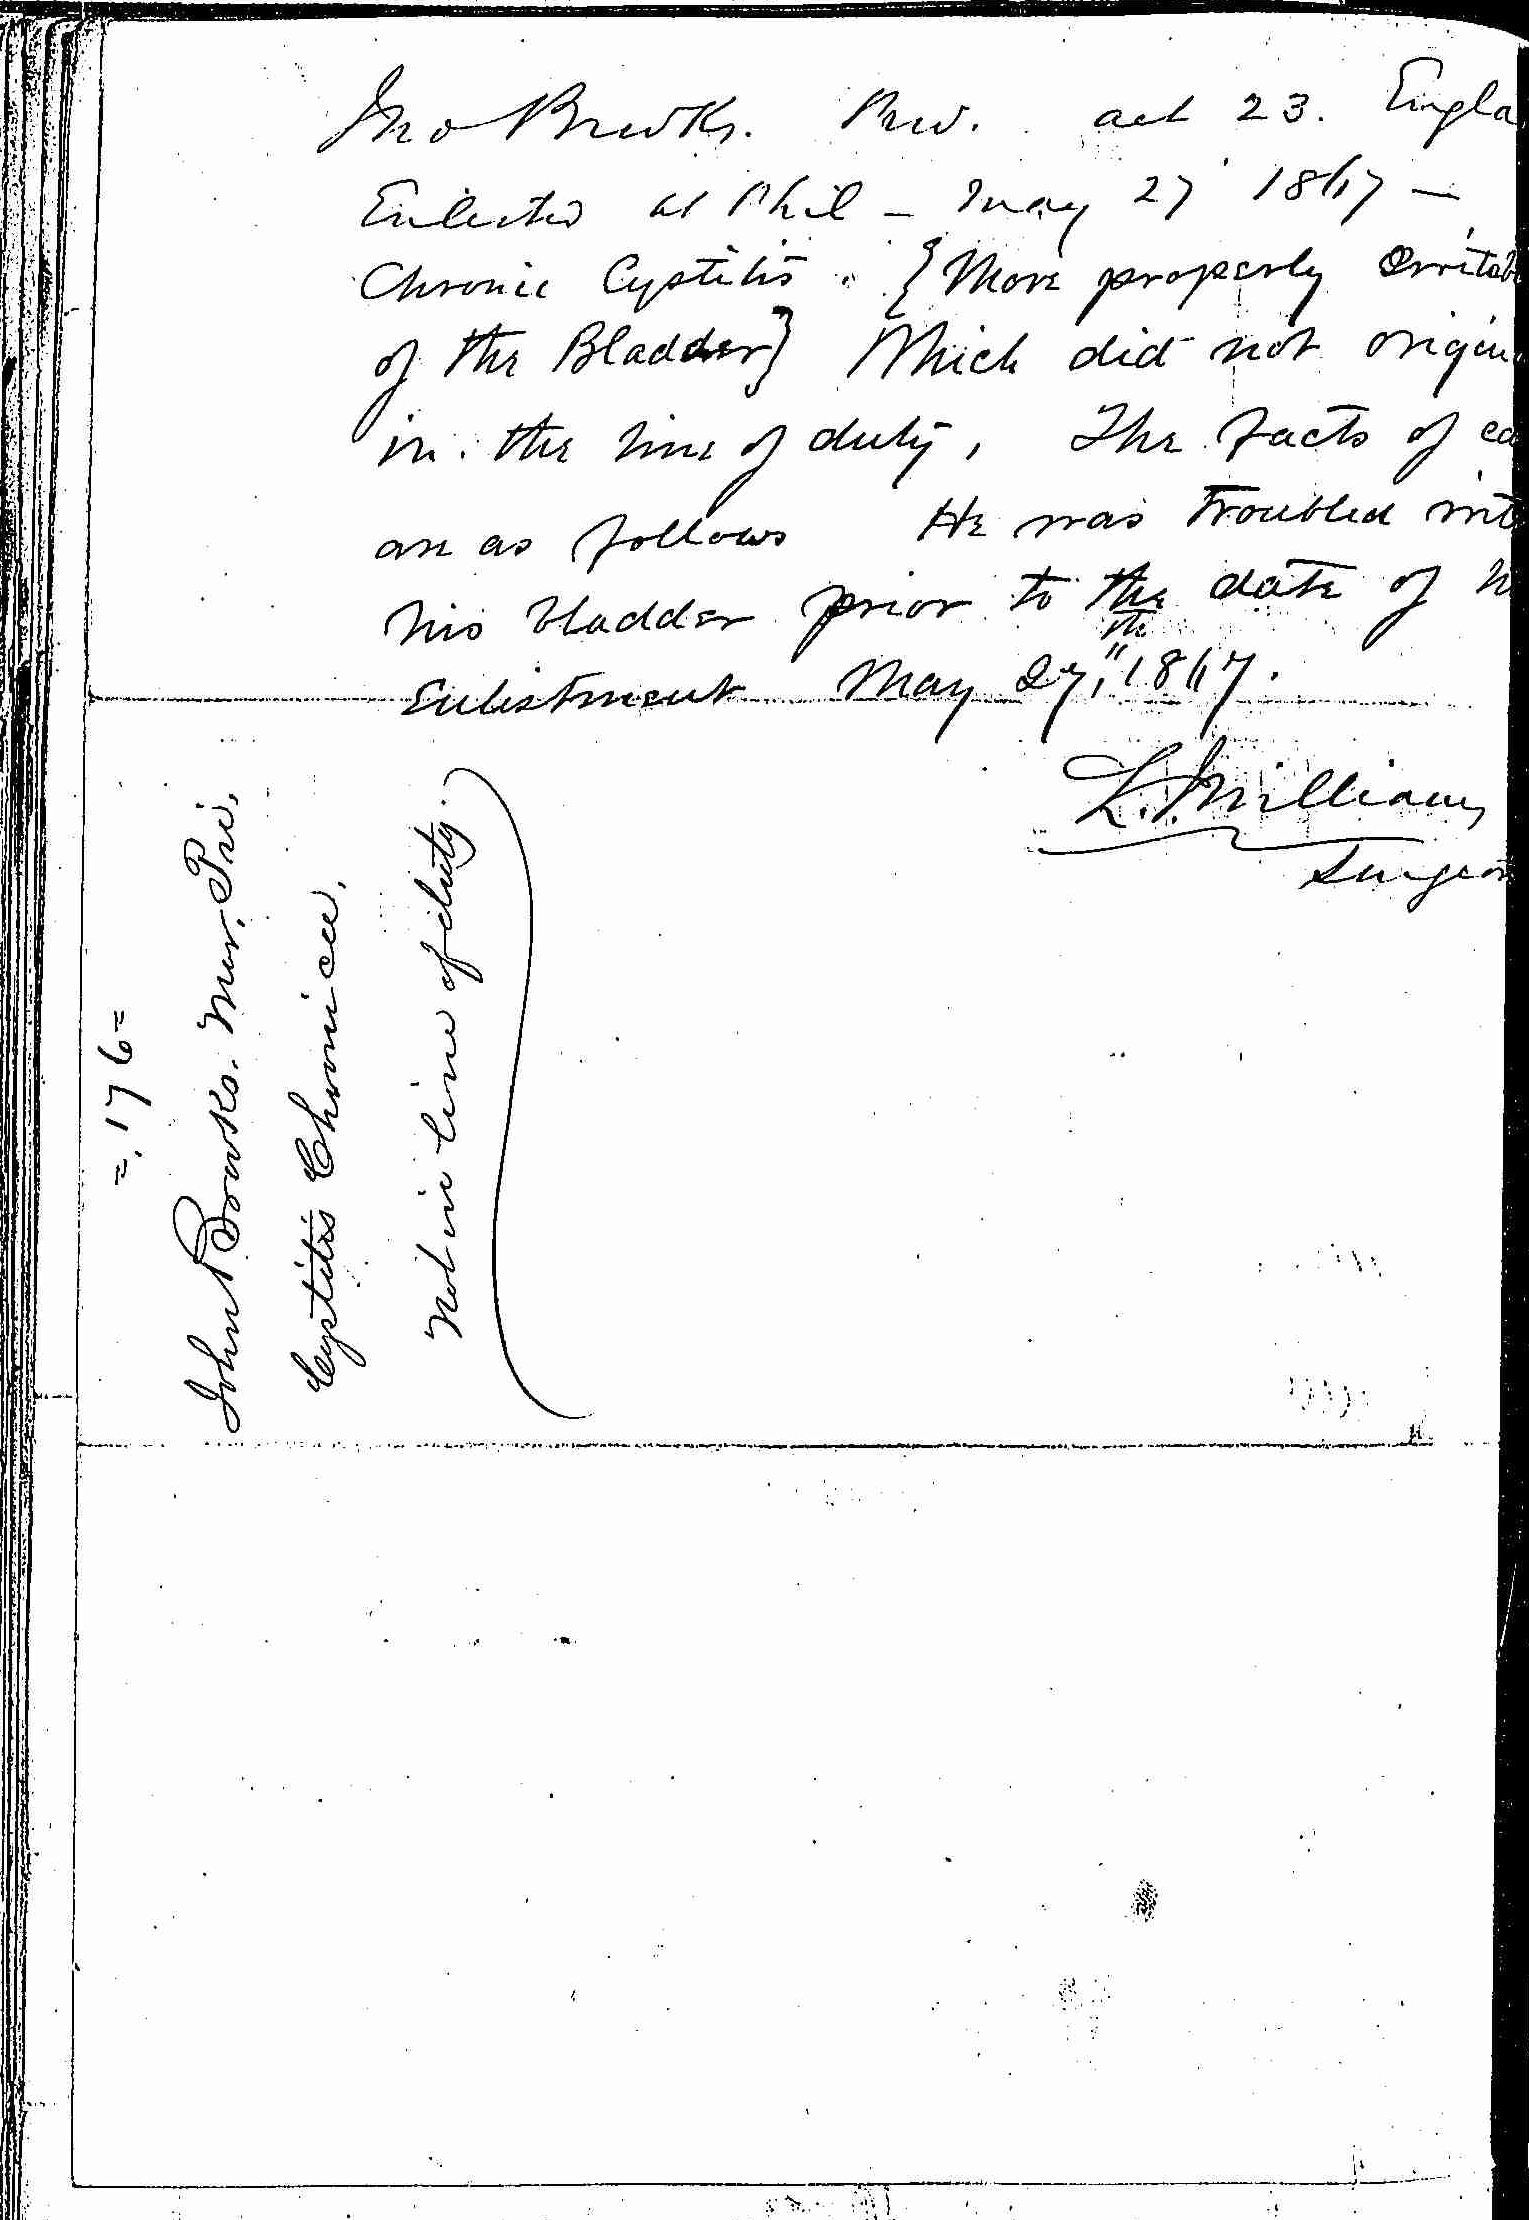 Jno Brooks. Priv. aet 23. Engla
Enlisted at Phil – May 27 1867 –
Chronic Cystitis. {More properly Irritab
of the Bladder} Which did not origin
in the line of duty, The facts of ca
are as follows He was troubled wit
his bladder prior to the date of h
Enlistment May 27,th 1867.
L. J. Williams
Surgeon
= 176 =
John Brooks. Mar. Pri.
Cystitis Chronica.
Not in line of duty.